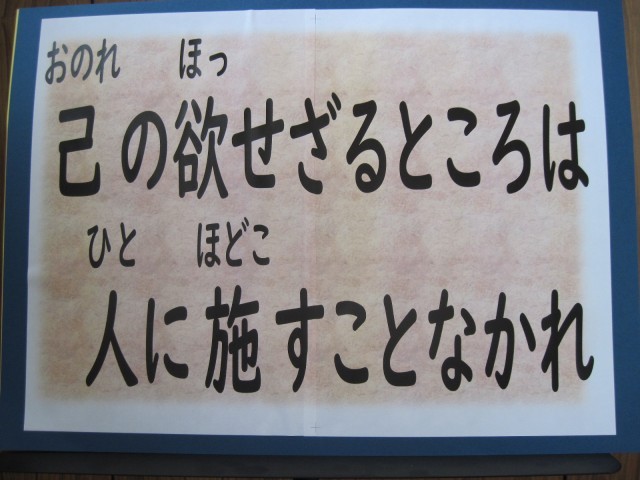 おのれ ほっ
己の欲せざるところは
ひと ほどこ
人に施すことなかれ